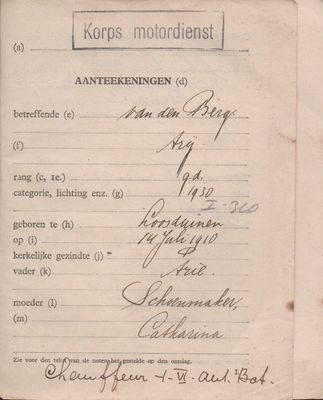 Korps motordienst
(a)
AANTEEKENINGEN (d)
betreffende (e) van den Berg.
(f) Arij
rang (c, 1e.) gd.
categorie, lichting enz. (g) 1930
I-310
geboren te (h) Loosduinen
op (i) 14 Juli 1910
kerkelijke gezindte (j) P
vader (k) Arie.
moeder (l) Schoenmaker,
(m) Catharina.
Zie voor den tekst van de noten het gestelde op den omslag.
Chauffeur 1-VI-Aut. Bat.